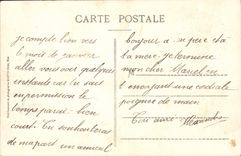 CARTE POSTALE
je compte bien vers
le mois de janvier
aller vous voir quelques
instants car tu sais
un permission le
temps parait bien
court. Tu souhaiteras
de ma part un amical
bonjour a ton père et a
ta mère. Je termine
mon cher Marcel en
t envoyant une cordiale
poignée de main
Ton ami